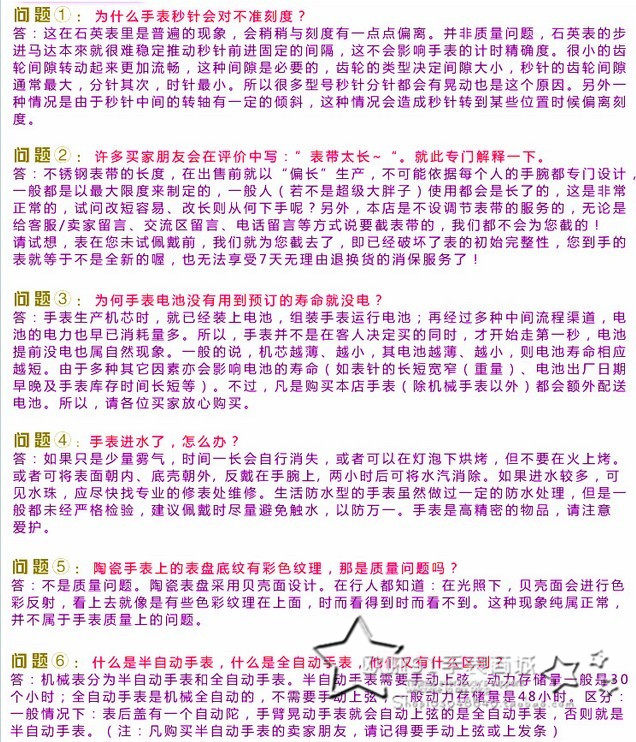 问题①：为什么手表秒针会对不准刻度？
答：这在石英表里是普遍的现象，会稍稍与刻度有一点点偏离。并非质量问题，石英表的步
进马达本來就很难稳定推动秒针前进固定的间隔，这不会影响手表的计时精确度。很小的齿
轮间隙转动起来更加流畅，这种间隙是必要的，齿轮的类型决定间隙大小，秒针的齿轮间隙
通常最大，分针其次，时针最小。所以很多型号秒针分针都会有晃动也是这个原因。另外一
种情况是由于秒针中间的转轴有一定的倾斜，这种情况会造成秒针转到某些位置时候偏离刻
度。
问题②：许多买家朋友会在评价中写：”表带太长~“。就此专门解释一下。
答：不锈钢表带的长度，在出售前就以“偏长”生产，不可能依据每个人的手腕都专门设计，
一般都是以最大限度来制定的，一般人（若不是超级大胖子）使用都会是长了的，这是非常
正常的，试问改短容易、改长则从何下手呢？另外，本店是不设调节表带的服务的，无论是
给客服/卖家留言、交流区留言、电话留言等方式说要截表带的，我们都不会为您截的！
请试想，表在您未试佩戴前，我们就为您截去了，即已经破坏了表的初始完整性，您到手的
表就等于不是全新的喔，也无法享受7天无理由退换货的消保服务了！
问题③：为何手表电池没有用到预订的寿命就没电？
答：手表生产机芯时，就已经装上电池，组装手表运行电池；再经过多种中间流程渠道，电
池的电力也早已消耗量多。所以，手表并不是在客人决定买的同时，才开始走第一秒，电池
提前没电也属自然现象。一般的说，机芯越薄、越小，其电池越薄、越小，则电池寿命相应
越短。由于多种其它因素亦会影响电池的寿命（如表针的长短宽窄（重量）、电池出厂日期
早晚及手表库存时间长短等）。不过，凡是购买本店手表（除机械手表以外）都会额外配送
电池。所以，请各位买家放心购买。
问题④：手表进水了，怎么办？
答：如果只是少量雾气，时间一长会自行消失，或者可以在灯泡下烘烤，但不要在火上烤。
或者可将表面朝内、底壳朝外，反戴在手腕上，两小时后可将水汽消除。如果进水较多，可
见水珠，应尽快找专业的修表处维修。生活防水型的手表虽然做过一定的防水处理，但是一
般都未经严格检验，建议佩戴时尽量避免触水，以防万一。手表是高精密的物品，请注意
爱护。
问题⑤：陶瓷手表上的表盘底纹有彩色纹理，那是质量问题吗？
答：不是质量问题。陶瓷表盘采用贝壳面设计。在行人都知道：在光照下，贝壳面会进行色
彩反射，看上去就像是有些彩色纹理在上面，时而看得到时而看不到。这种现象纯属正常，
并不属于手表质量上的问题。
问题⑥：什么是半自动手表，什么是全自动手表，他们又有什么区别？
答：机械表分为半自动手表和全自动手表。半自动手表需要手动上弦，动力存储量一般是30
个小时；全自动手表是机械全自动的，不需要手动上弦，一般动力存储量是48小时。区分：
一般情况下：表后盖有一个自动陀，手臂晃动手表就会自动上弦的是全自动手表，否则就是
半自动手表。（注：凡购买半自动手表的卖家朋友，请记得要手动上弦或上发条）
手表商城